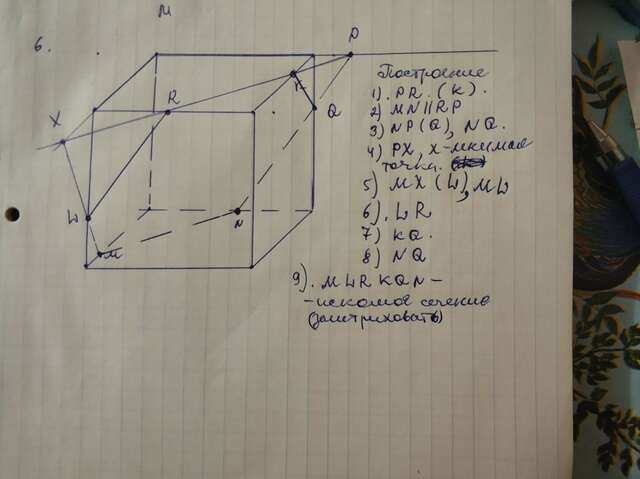 М
6.
P
R
K
X
Q
W
N
M
Построение
1). PR. (K).
2) MN || RP
3) NP (Q), NQ.
4) PX, X - мнимая
точка.
5) MX (W), MW
6). WR
7) KQ.
8) NQ
9). MWRKQN -
- искомое сечение
(заштриховать)